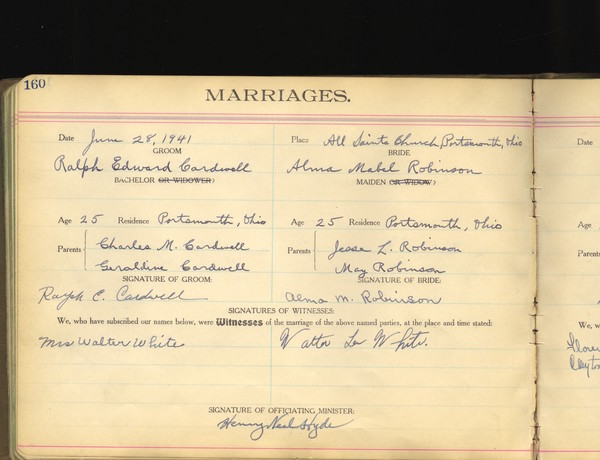 160
MARRIAGES.
Date June 28, 1941 Place All Saints Church, Portsmouth, Ohio
GROOM BRIDE
Ralph Edward Cardwell Alma Mabel Robinson
BACHELOR OR WIDOWER? MAIDEN OR WIDOW?
Age 25 Residence Portsmouth, Ohio Age 25 Residence Portsmouth, Ohio
Parents Charles M. Cardwell Parents Jesse L. Robinson
Geraldine Cardwell May Robinson
SIGNATURE OF GROOM: SIGNATURE OF BRIDE:
Ralph E. Cardwell Alma M. Robinson
SIGNATURES OF WITNESSES:
We, who have subscribed our names below, were Witnesses of the marriage of the above named parties, at the place and time stated:
Mrs Walter White Walter Lee White.
SIGNATURE OF OFFICIATING MINISTER:
Henry Neal Hyde
Date
Age
Parents
We, w